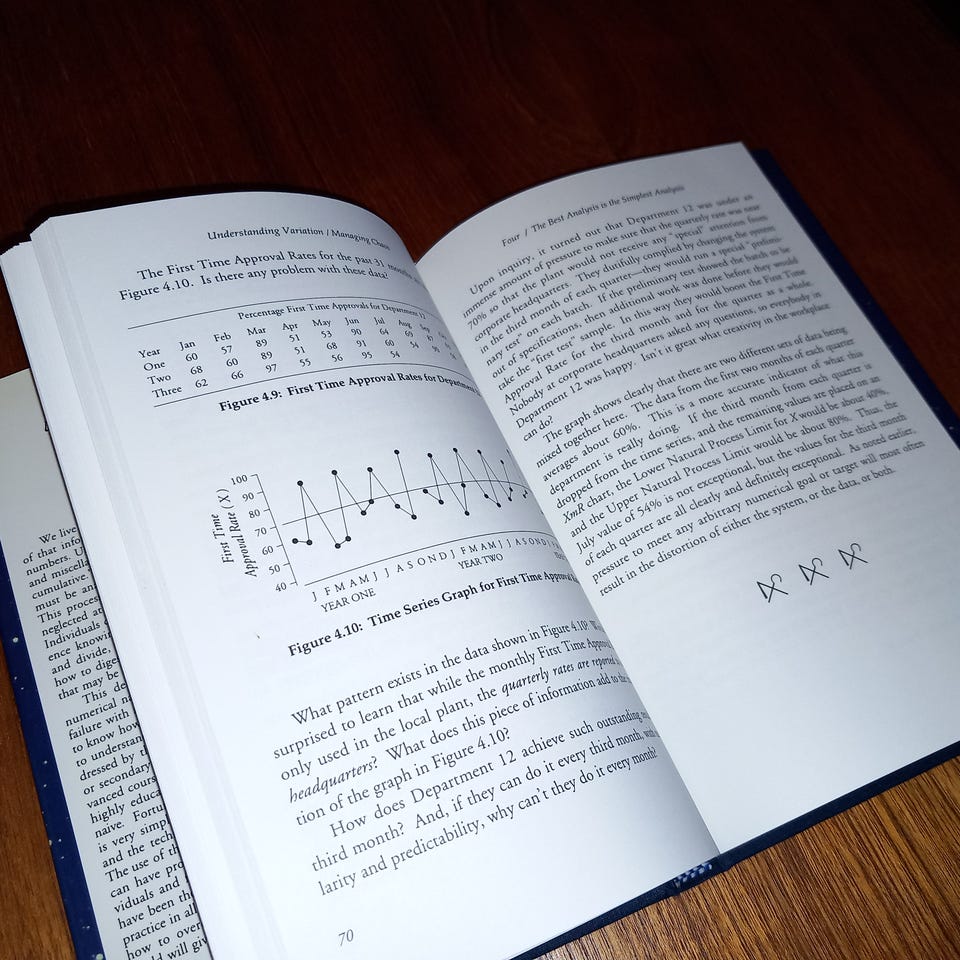 We live
of that info
numbers. U
and miscella
cumulative.
must be an
This proces
neglected at
Individuals
ence knowi
and divide,
how to dige
that may be
This de
numerical n
failure with
to know how
to understan
dressed by t
or secondary
vanced cours
highly educa
naive. Fortu
is very simp
and the tech
The use of th
can have pro
viduals and
have been th
practice in all
how to over
will giv
Understanding Variation / Managing Chaos
The First Time Approval Rates for the past 31
Figure 4.10. Is there any problem with these data?
Percentage First Time Approvals for Department 12
Year Jan Feb Mar Apr May Jun Jul Aug Sep
One 60 57 89 51 53 90 64 69 87
Two 68 60 89 51 68 91 60 54
Three 62 66 97 55 56 95 54
Figure 4.9: First Time Approval Rates for Department
First Time
Approval Rate (X)
100
90
80
70
60
50
40
J F M A M J J A S O N D J F M A M J J A S O N D J F M
YEAR ONE YEAR TWO
Figure 4.10: Time Series Graph for First Time Approval
What pattern exists in the data shown in Figure 4.10?
surprised to learn that while the monthly First Time
only used in the local plant, the quarterly rates are reported
headquarters? What does this piece of information add to the
tion of the graph in Figure 4.10?
How does Department 12 achieve such outstanding
third month? And, if they can do it every third month, with
larity and predictability, why can't they do it every month?
70
Four / The Best Analysis is the Simplest Analysis
Upon inquiry, it turned out that Department 12 was under an
immense amount of pressure to make sure that the quarterly rate was near
70% so that the plant would not receive any "special" attention from
corporate headquarters. They dutifully complied by changing the system
in the third month of each quarter—they would run a special "prelimi-
nary test" on each batch. If the preliminary test showed the batch to be
out of specifications, then additional work was done before they would
take the "first test" sample. In this way they would boost the First Time
Approval Rate for the third month and for the quarter as a whole.
Nobody at corporate headquarters asked any questions, so everybody in
Department 12 was happy. Isn't it great what creativity in the workplace
can do?
The graph shows clearly that there are two different sets of data being
mixed together here. The data from the first two months of each quarter
averages about 60%. This is a more accurate indicator of what this
department is really doing. If the third month from each quarter is
dropped from the time series, and the remaining values are placed on an
XmR chart, the Lower Natural Process Limit for X would be about 40%,
and the Upper Natural Process Limit would be about 80%. Thus, the
July value of 54% is not exceptional, but the values for the third month
of each quarter are all clearly and definitely exceptional. As noted earlier,
pressure to meet any arbitrary numerical goal or target will most often
result in the distortion of either the system, or the data, or both.